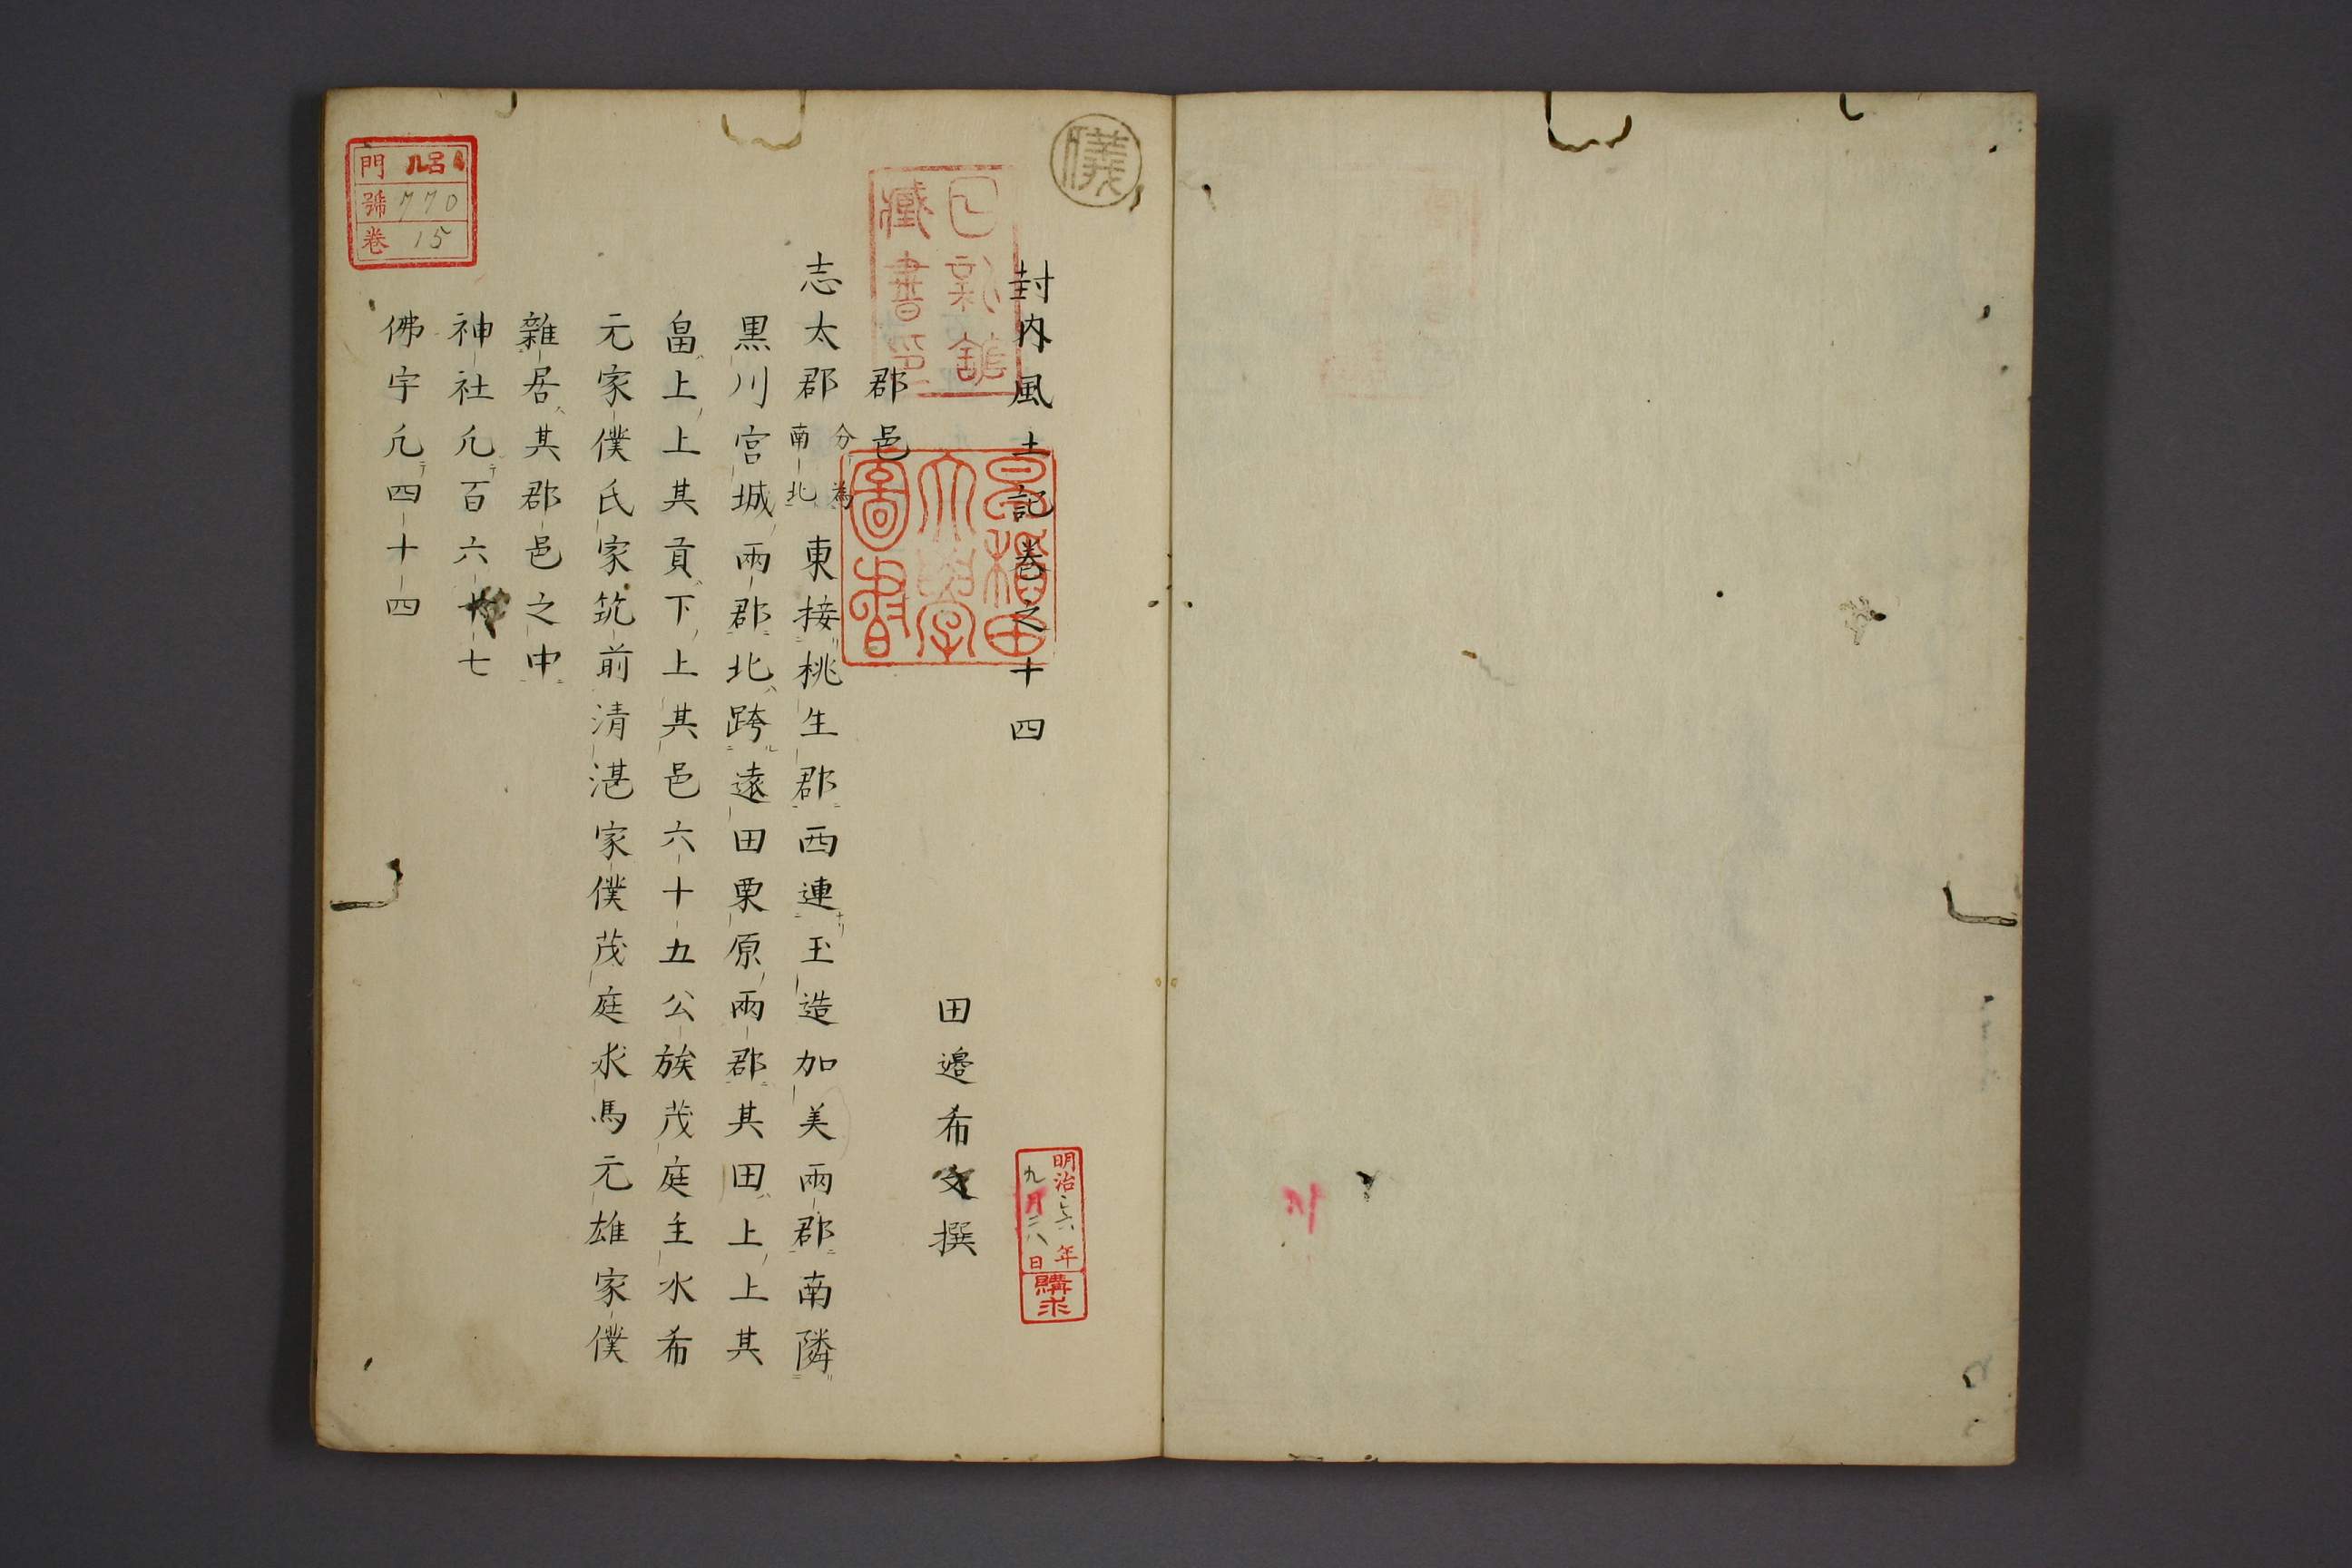 封内風土記巻之十四
田邉希文撰
郡邑
志太郡 分為南北 東接桃生郡西連玉造加美兩郡南隣
黒川宮城兩郡北跨遠田栗原兩郡其田上上其
畠上上其貢下上其邑六十五公族茂庭主水希
元家僕氏家筑前清湛家僕茂庭求馬元雄家僕
雜居其郡邑之中
神社凢百六十七
佛宇凢四十四
明治三六年
九月二八日
購求
早稲田
大學
圖書
藏書印
門 ル呂4
號 770
巻 15